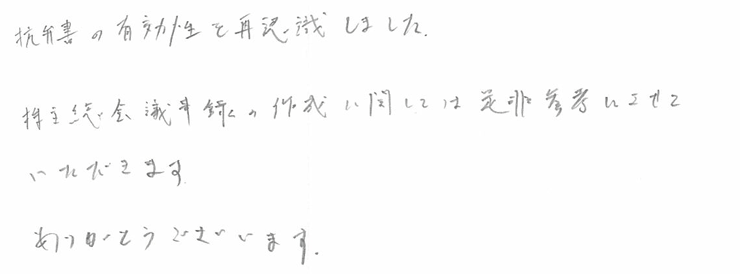 抗弁書の有効性を再認識しました.
株主総会議事録の作成に関しては是非参考にさせて
いただきます
ありがとうございます.